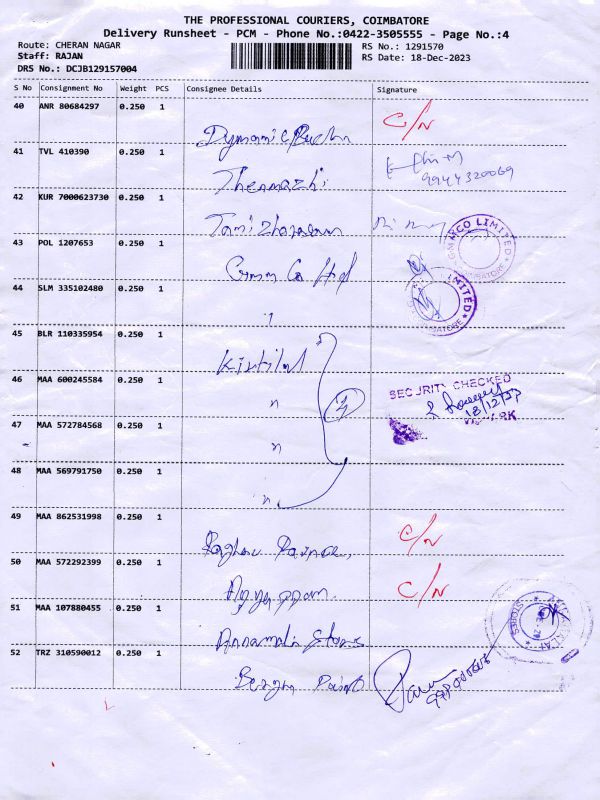 THE PROFESSIONAL COURIERS, COIMBATORE
Delivery Runsheet - PCM - Phone No.:0422-3505555 - Page No.:4
Route: CHERAN NAGAR
RS No.: 1291570
Staff: RAJAN
RS Date: 18-Dec-2023
DRS No.: DCJB129157004
S No Consignment No Weight PCS Consignee Details Signature
40 ANR 80684297 0.250 1 C/N
41 TVL 410390 0.250 1 Thenmozhi
9944320069
42 KUR 7000623730 0.250 1
43 POL 1207653 0.250 1
GMMCO LIMITED
44 SLM 335102480 0.250 1 "
LIMITED
45 BLR 110335954 0.250 1 Kirtilal
46 MAA 600245584 0.250 1 "
SECURITY CHECKED
18/12/23
47 MAA 572784568 0.250 1 "
48 MAA 569791750 0.250 1 "
49 MAA 862531998 0.250 1 C/N
50 MAA 572292399 0.250 1 Ayyappan. C/N
51 MAA 107880455 0.250 1 Annamalai Stores
STORES
52 TRZ 310590012 0.250 1 Paint